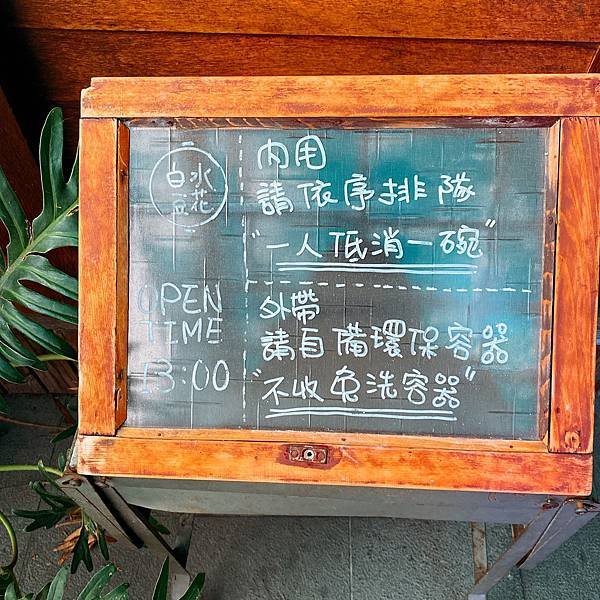 白水
豆花
OPEN
TIME
13:00
內用
請依序排隊
"一人低消一碗"
外帶
請自備環保容器
"不收免洗容器"